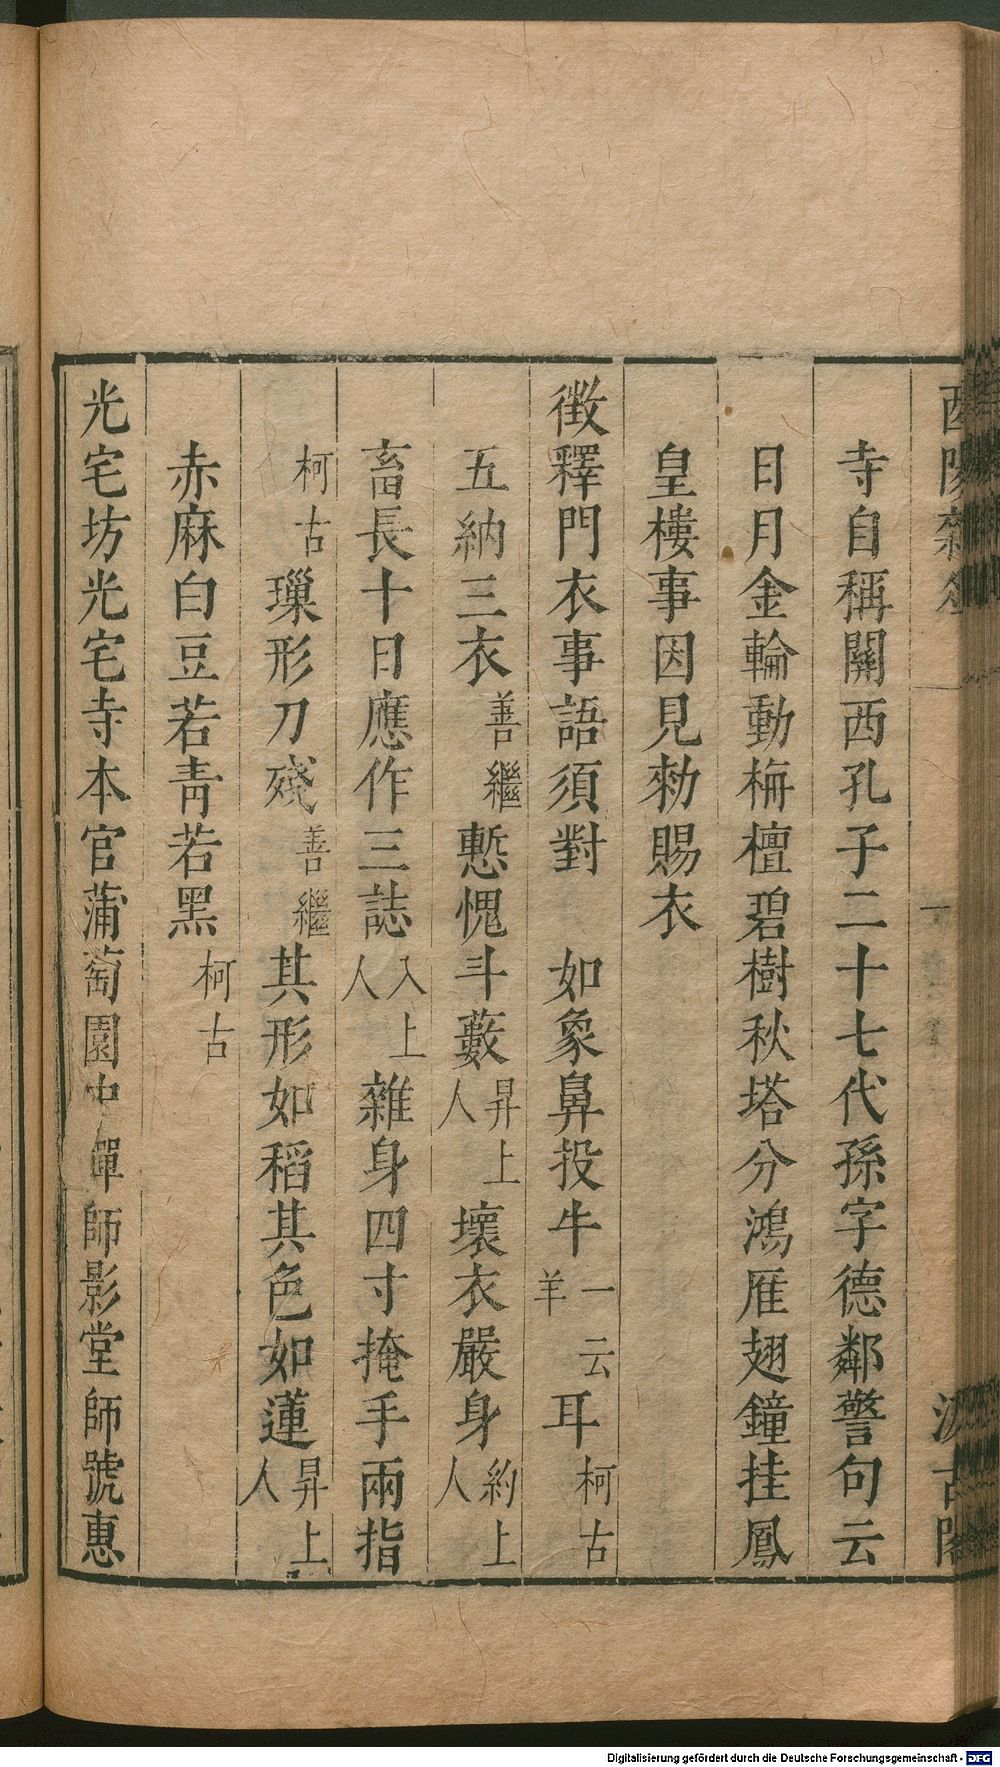 酉陽雜俎 一 汲古閣
寺自稱關西孔子二十七代孫字德鄰警句云
日月金輪動栴檀碧樹秋塔分鴻雁翅鐘挂鳳
皇樓事因見勑賜衣
徵釋門衣事語須對　如象鼻投牛一云羊耳柯古
五納三衣善繼慙愧斗藪昇上人壞衣嚴身約上人
畜長十日應作三誌入上人雜身四寸掩手兩指
柯古璅形刀殘善繼其形如稻其色如蓮昇上人
赤麻白豆若靑若黑柯古
光宅坊光宅寺本官蒲萄園中禪師影堂師號惠
Digitalisierung gefördert durch die Deutsche Forschungsgemeinschaft - DFG